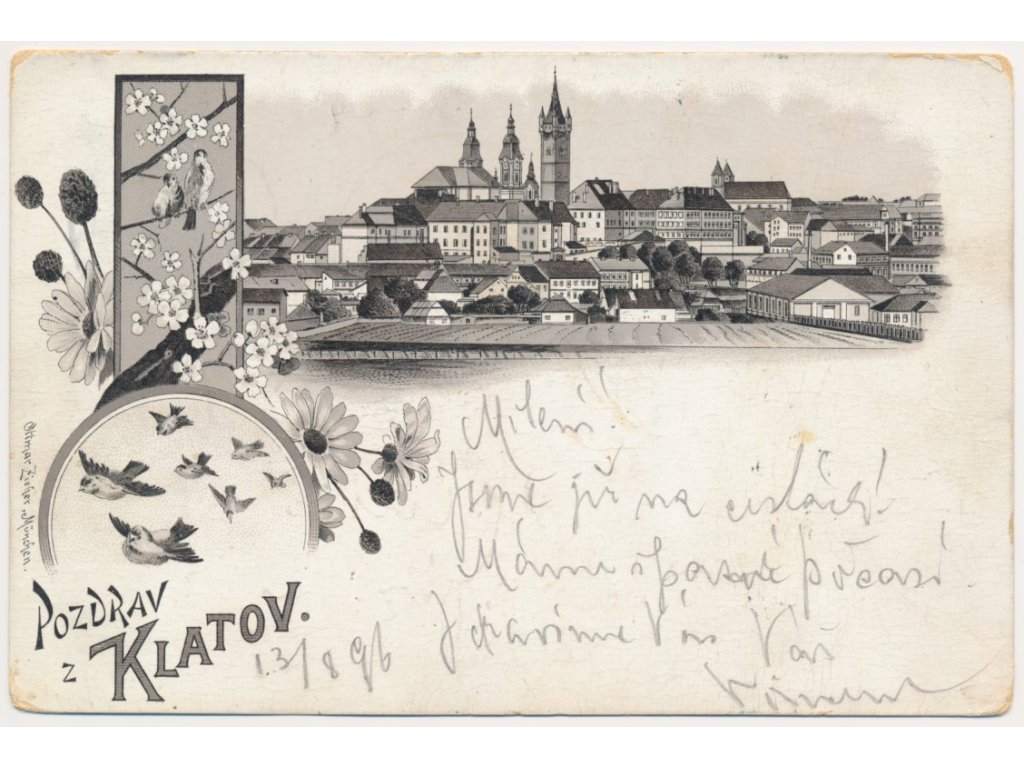 Ottmar Zieher, München.
POZDRAV
z KLATOV.
13/8 96
Milení!
Jsme již na cestách!
Máme špatné počasí.
Zdravíme Vás Váš